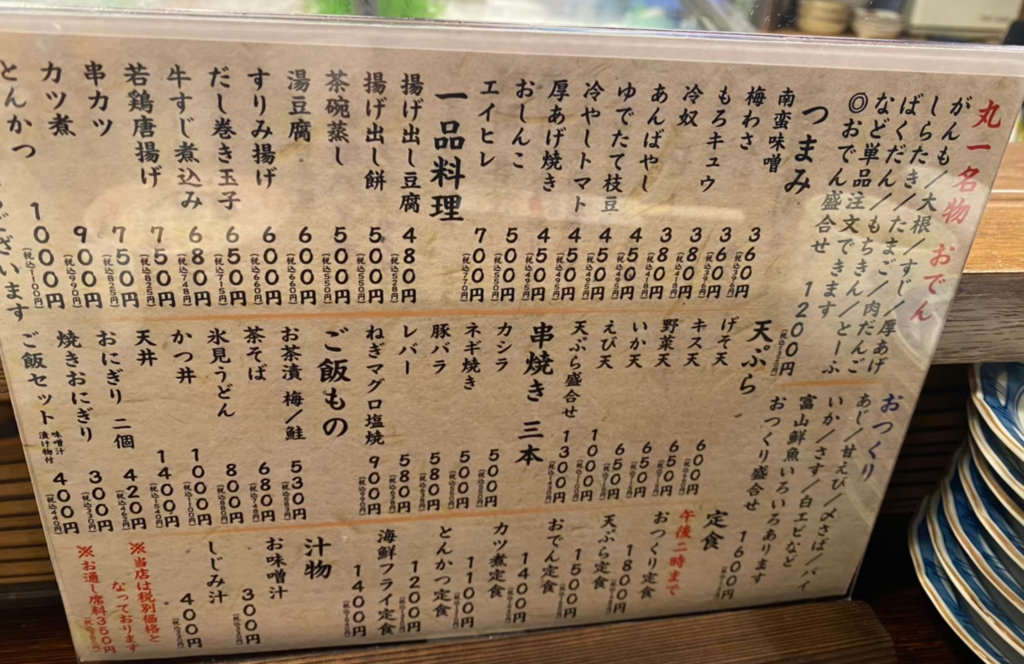 丸一名物 おでん
がんも/大根/すじ/厚あげ
しらたき/たまご/肉だんご
ばくだん/もちきん/とーふ
など単品注文できます
◎おでん盛合せ 1200円
つまみ
南蛮味噌 360円(税込396円)
梅わさ 360円(税込396円)
もろキュウ 380円
冷奴 380円
あんばやし 450円
ゆでたて枝豆 450円(税込495円)
冷やしトマト 450円(税込495円)
厚あげ焼き 450円(税込495円)
おしんこ 500円(税込550円)
エイヒレ 700円(税込770円)
一品料理
揚げ出し豆腐 480円(税込528円)
揚げ出し餅 500円(税込550円)
茶碗蒸し 500円(税込550円)
湯豆腐 600円(税込660円)
すりみ揚げ 600円(税込660円)
だし巻き玉子 650円(税込715円)
牛すじ煮込み 680円(税込748円)
若鶏唐揚げ 750円(税込825円)
串カツ 750円(税込825円)
カツ煮 900円(税込990円)
とんかつ 1000円(税込1100円)
ございます
おつくり
あじ/甘えび/〆さば/バイ
いか/さす/白エビなど
富山鮮魚いろいろあります
おつくり盛合せ 1600円
天ぷら
げそ天 600円
キス天 650円
野菜天 650円
いか天 650円
えび天 1000円
天ぷら盛合せ 1300円
串焼き 三本
カシラ 500円
ネギ焼き 500円
豚バラ 580円
レバー 580円
ねぎマグロ塩焼 900円
ご飯もの
お茶漬 梅/鮭 530円
茶そば 680円
氷見うどん 800円
かつ丼 1000円
天丼 1400円
おにぎり 二個 420円
焼きおにぎり 300円
ご飯セット 味噌汁 漬け物付 400円
定食
午後二時まで
おつくり定食 1800円
天ぷら定食 1500円
おでん定食 1400円
カツ煮定食 1100円
とんかつ定食 1200円
海鮮フライ定食 1400円
汁物
お味噌汁 300円
しじみ汁 400円
※当店は税別価格と
なっております
※お通し席料350円